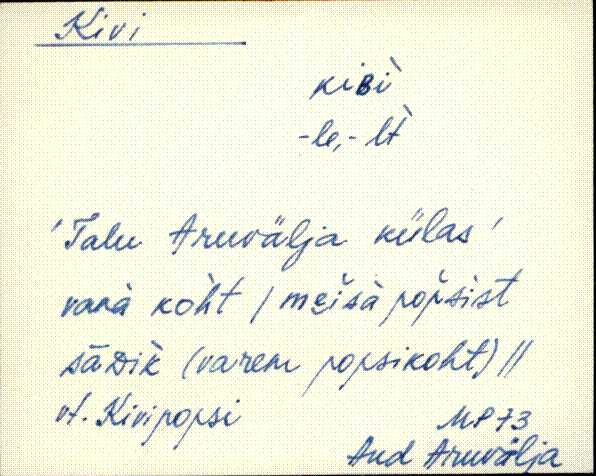 Kivi
kiʙì
-le, -lt̀
'Talu Aruvälja külas'
vanà kòht / mei̯sà pop̀sist
säᴅìk (varem popsikoht) //
vt. Kivipopsi
MP 73
Aud Aruvälja